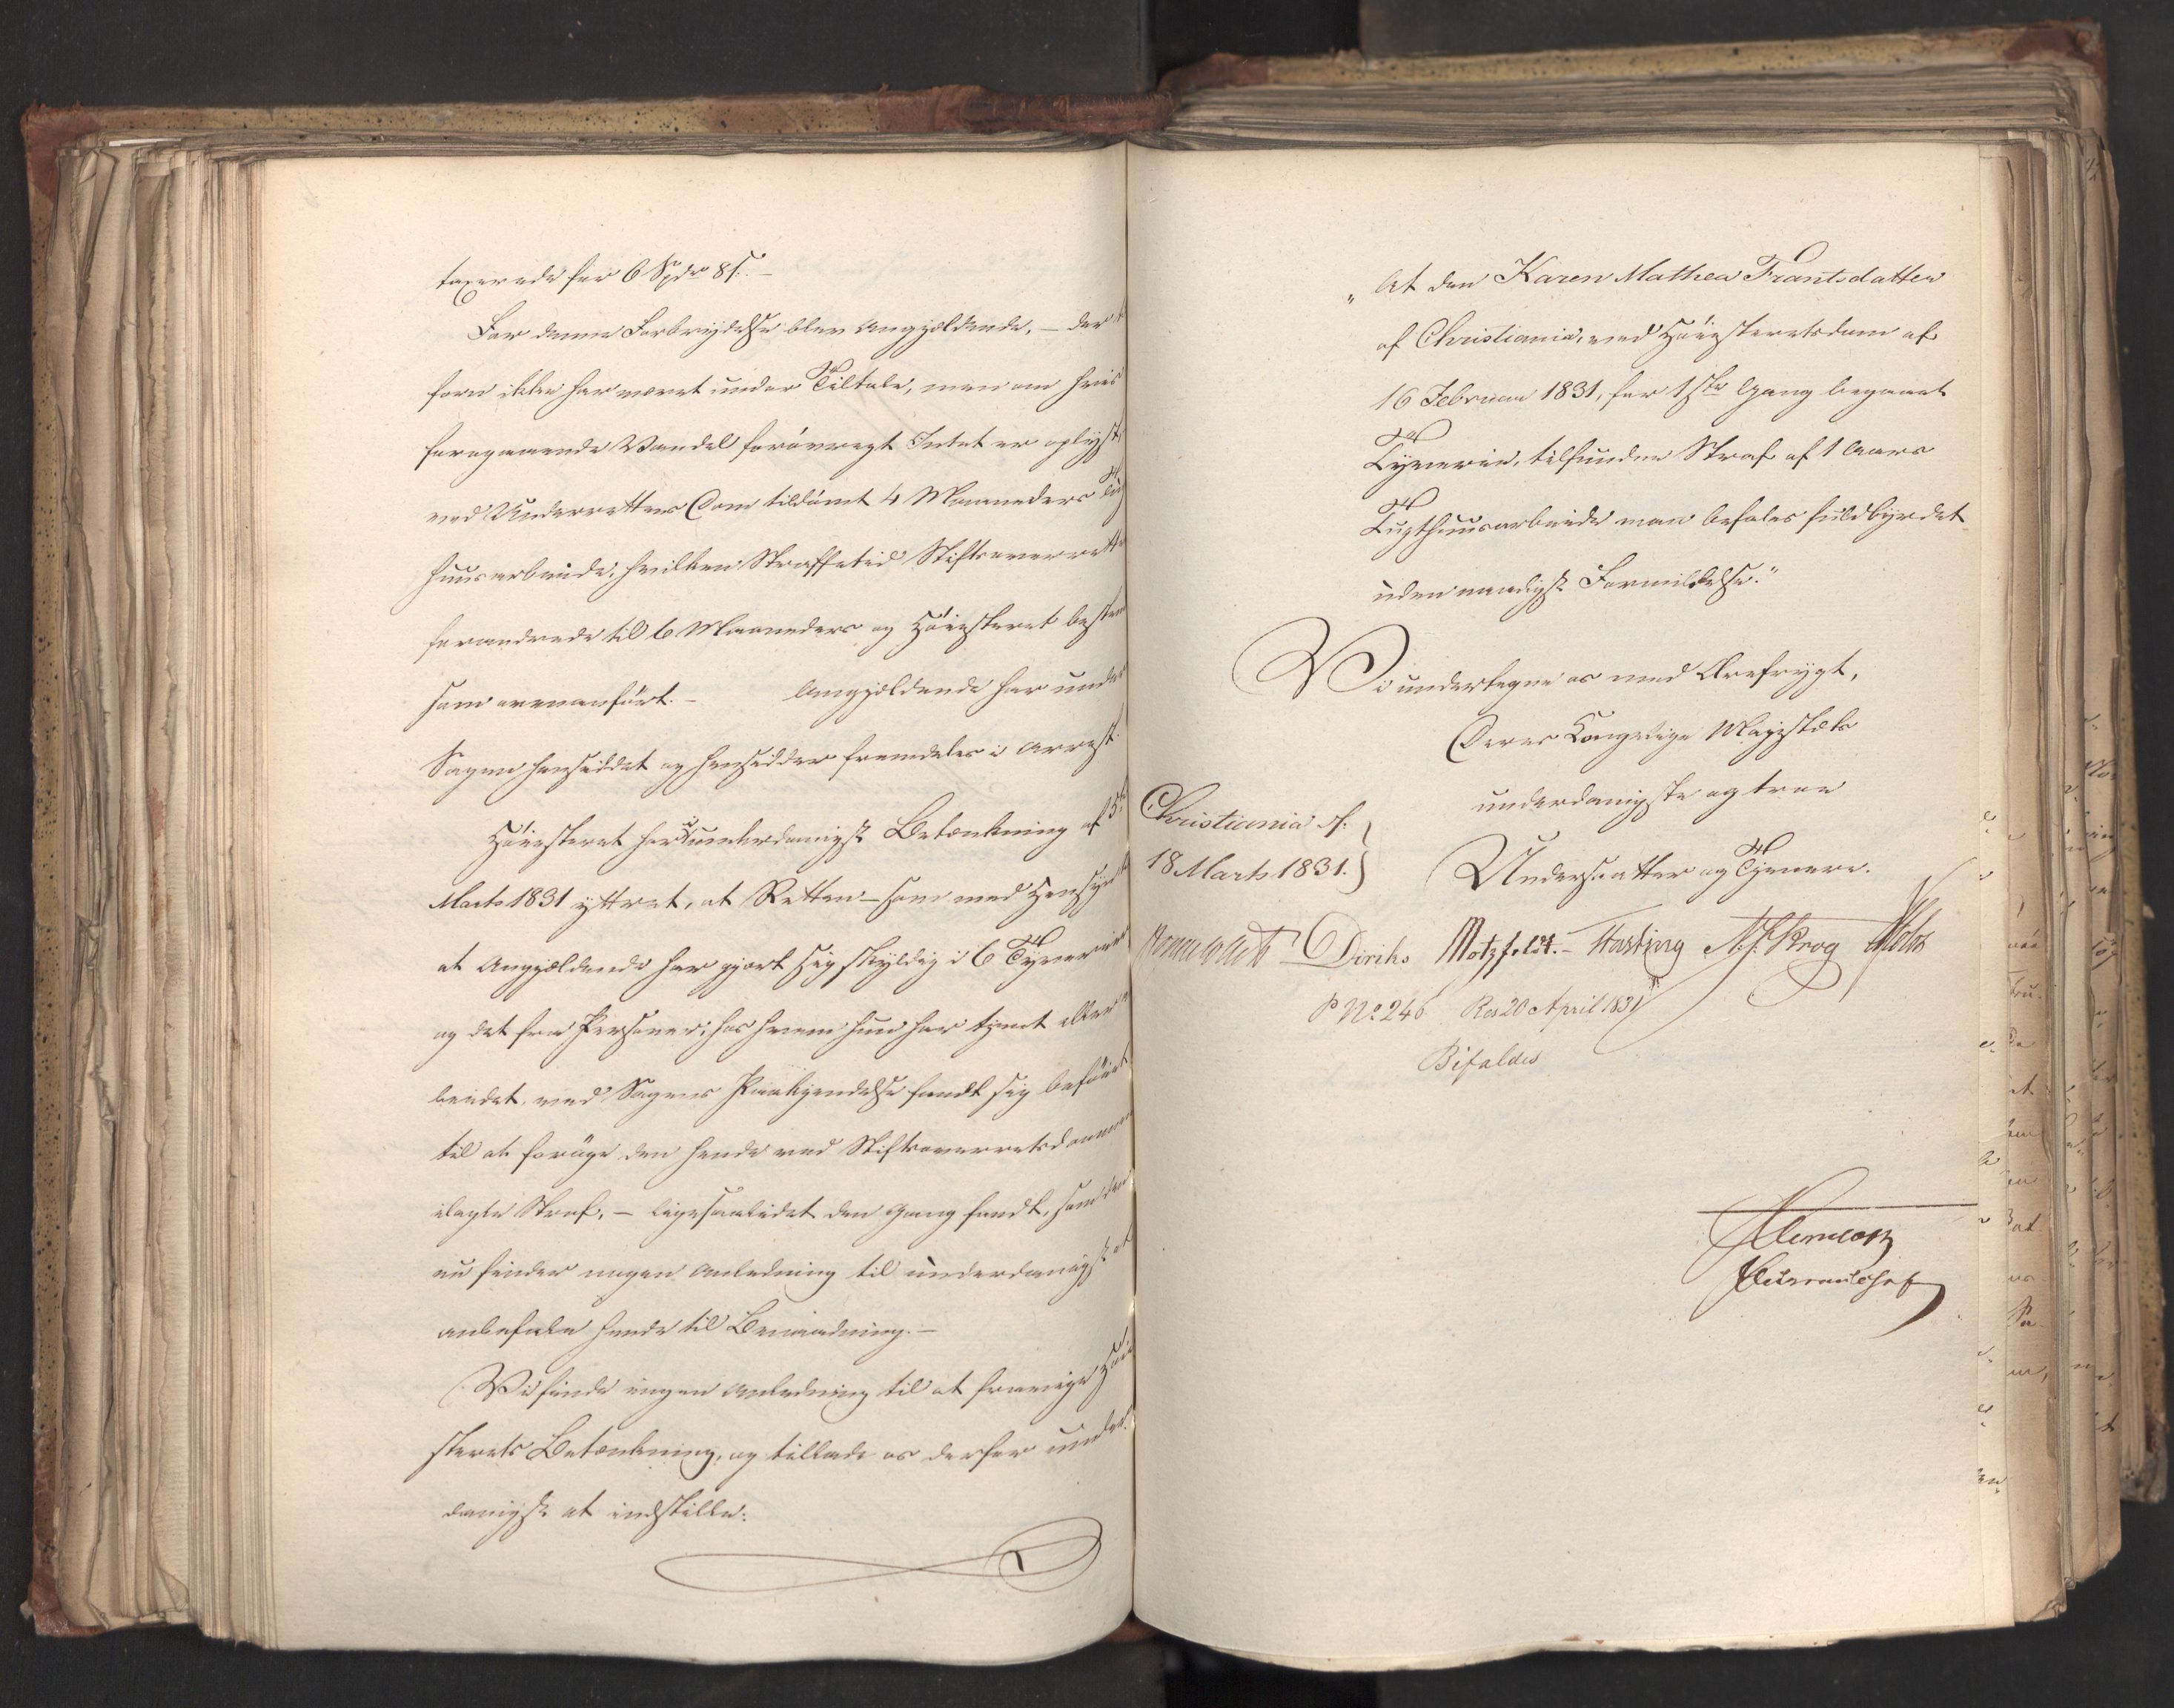 taxerede for 6 Spdr 8 s. —
For denne Forbrydelse blev Angjældende, — der
forn ikke har været under Tiltale, men om hvis
foregaaende Vandel forøvrigt Intet er oplyst,
ved Underrettens Dom tildømt 4 Maaneders Tugt
huusarbeide, hvilken Straffetid Stiftsoverretten
forandrede til 6 Maaneder og Høiesteret bestem
som ovenanført. — Angjældende har under
Sagen hensiddet og hensidder fremdeles i Arrest.
Høiesteret har i underdanigst Betænkning af 5te
Marts 1831 yttret, at Retten — som med Hensyn
at Angjældende har gjort sig skyldig i 6 Tyverier
og det fra Personer, hos hvem hun har tjent eller
beidet, ved Sagens Paakjendelse fandt sig beføiet
til at forøge den hende ved Stiftsoverretsdommen
ilagte Straf, — ligesaalidet den Gang fandt, som den
nu finder nogen Anledning til underdanigst at
anbefale hende til Benaadning. —
Vi finde ingen Anledning til at fravige Høie
sterets Betænkning, og tillade os derfor under
danigst at indstille:
"At den Karen Mathea Frantsdatter
af Christiania, ved Høiesteretsdom af
16 Februar 1831, for 1ste Gang begaaet
Tyverie, tilfunden Straf af 1 Aars
Tugthuusarbeide maa befales fuldbyrdet
uden naadigst Formildelse."
Vi undertegne os med Ærefrygt,
Deres Kongelige Majestæts
underdanigste og troe
Christiania d.
18 Marts 1831.
Undersaatter og Tjenere.
Diriks Motzfeldt. — Fasting N. J. Krog Holst
P No 246 Res 20 April 1831
Bifaldes